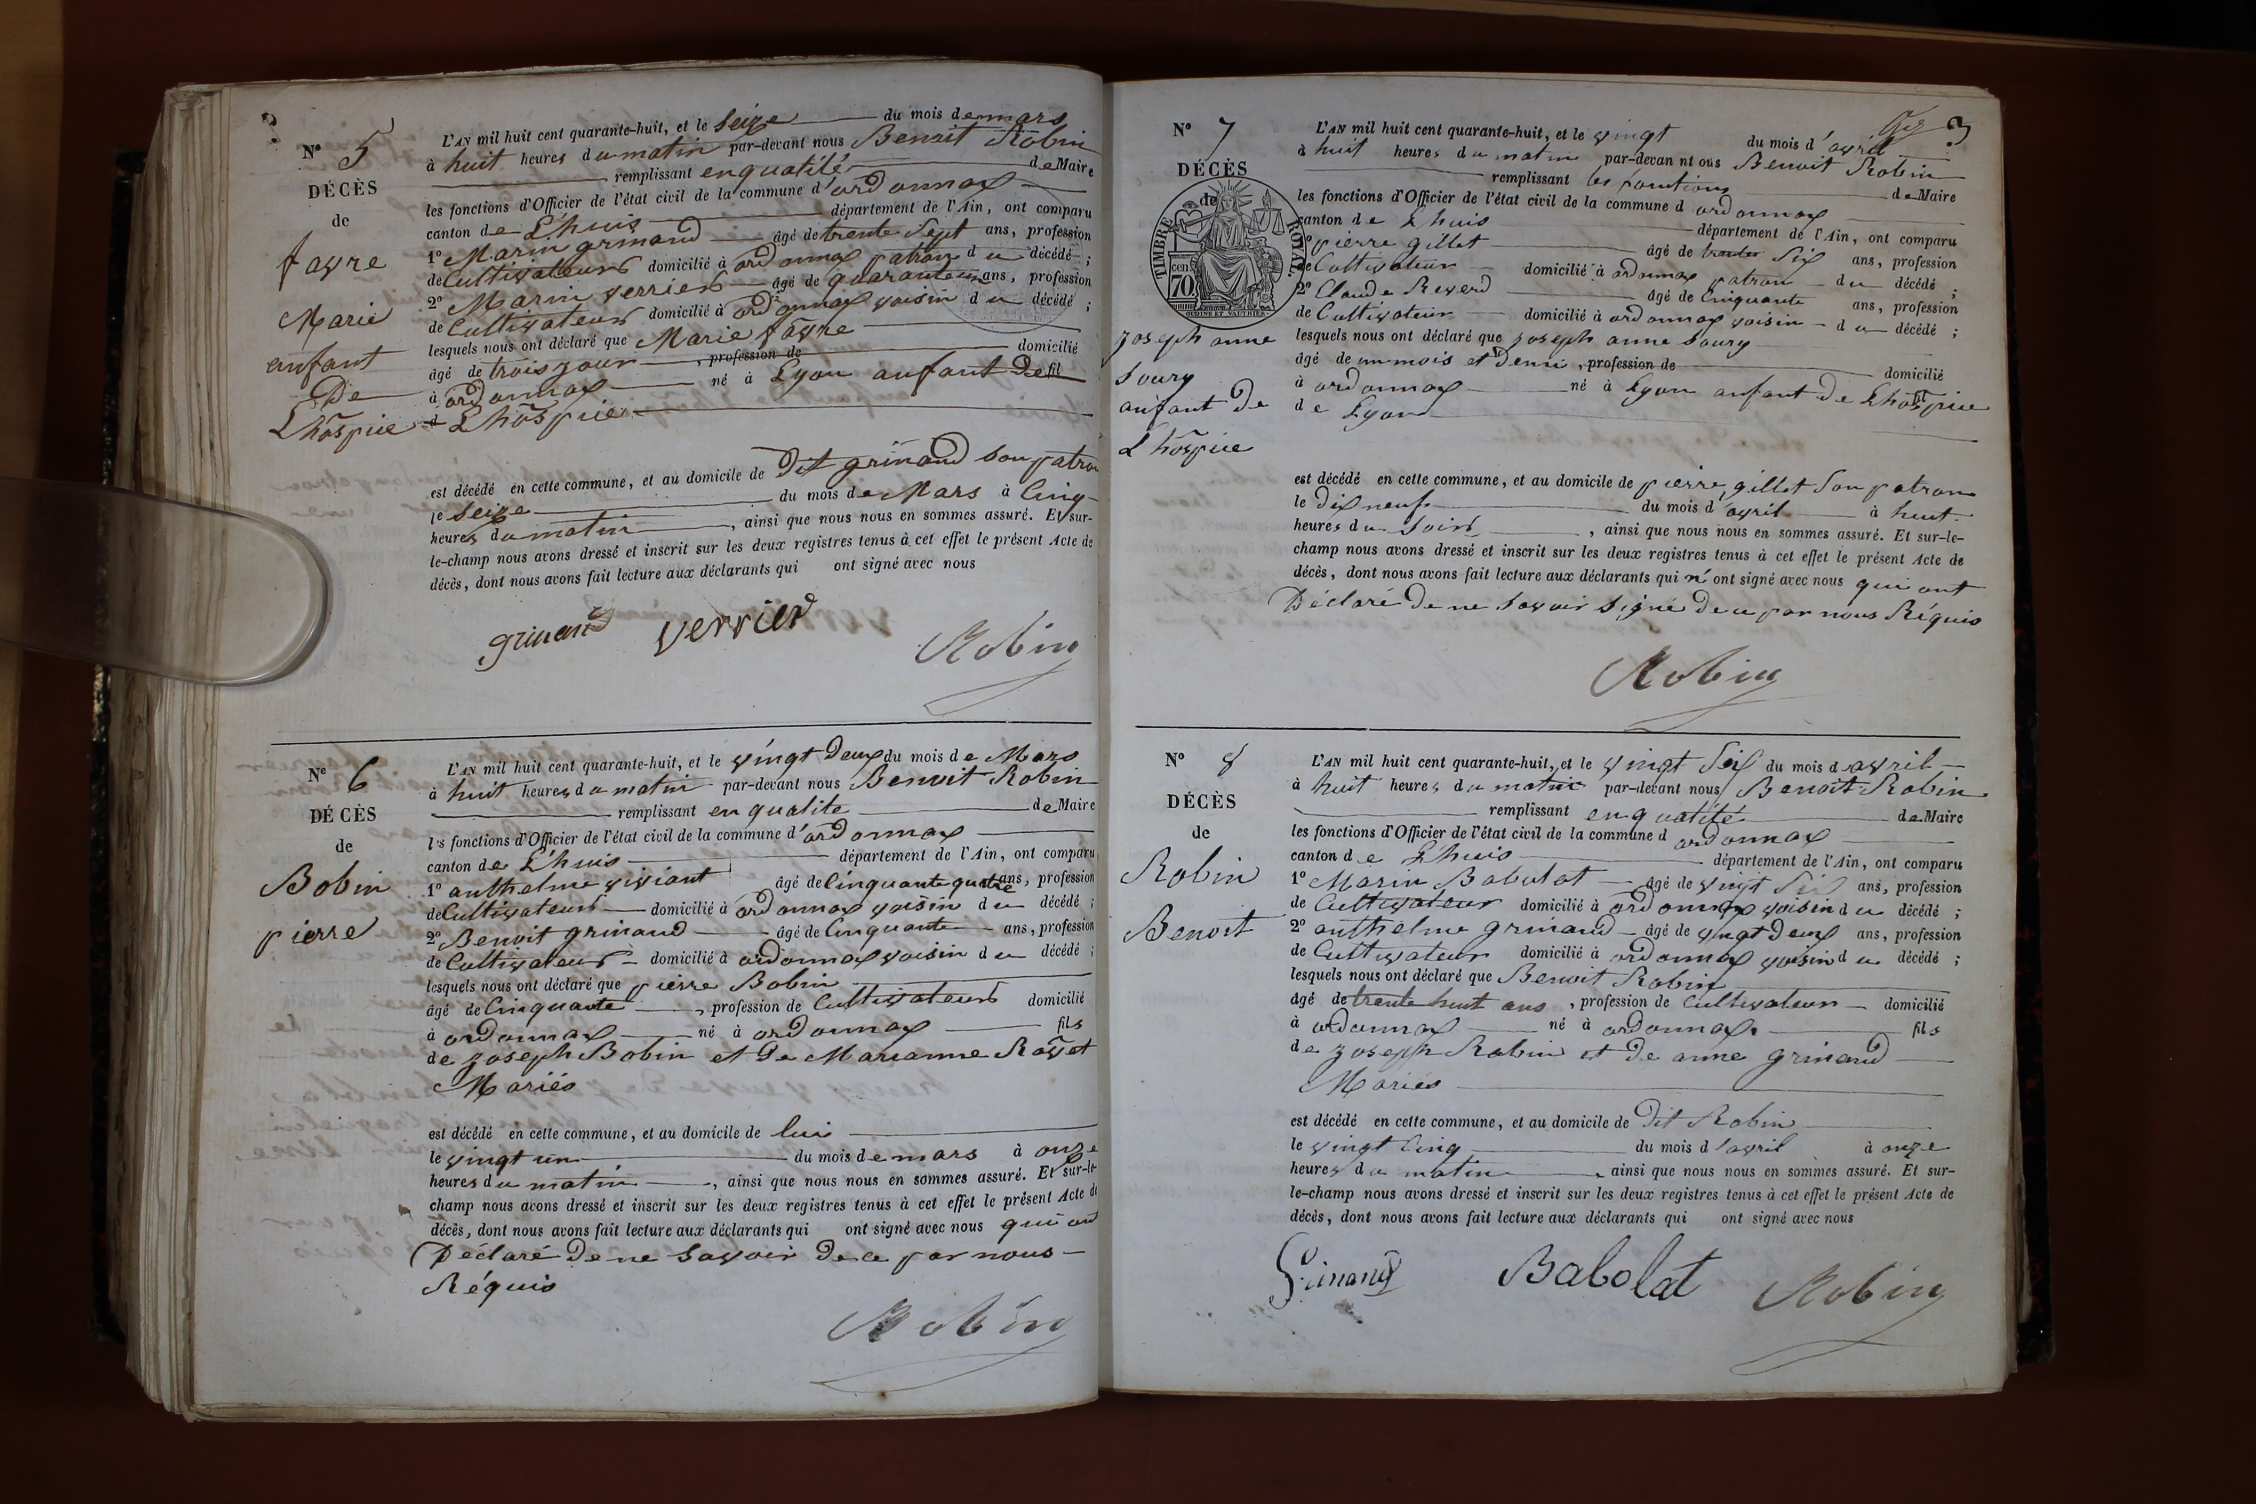 N° 5
DÉCÈS
de
fayre
Marie
enfant
De
L'hospice
L'AN mil huit cent quarante-huit, et le Seize du mois de mars
à huit heures du matin par-devant nous Benoit Robin
remplissant en qualité de Maire
les fonctions d'Officier de l'état civil de la commune d'ordonnax
canton de L'huis département de l'Ain, ont comparu
1° Marin grinand âgé de trente Sept ans, profession
de Cultivateur domicilié à ordonnax patron du décédé ;
2° Marin verrier âgé de quarante un ans, profession
de Cultivateur domicilié à ordonnax voisin du décédé ;
lesquels nous ont déclaré que Marie fayre
âgé de trois jour , profession de domicilié
à ordonnax né à Lyon anfant De fil
d L'hospice
est décédé en cette commune, et au domicile de Dit grinand Son patron
le Seize du mois de Mars à Cinq
heures du matin , ainsi que nous nous en sommes assuré. Et sur-
le-champ nous avons dressé et inscrit sur les deux registres tenus à cet effet le présent Acte de
décès, dont nous avons fait lecture aux déclarants qui ont signé avec nous
grinand verrier Robin
N° 6
DÉCÈS
de
Bobin
pierre
L'AN mil huit cent quarante-huit, et le vingt Deux du mois de Mars
à huit heures du matin par-devant nous Benoit Robin
remplissant en qualite de Maire
les fonctions d'Officier de l'état civil de la commune d'ordonnax
canton de L'huis département de l'Ain, ont comparu
1° anthelme viviant âgé de Cinquante quatre ans, profession
de Cultivateur domicilié à ordonnax voisin du décédé ;
2° Benoit grinand âgé de Cinquante ans, profession
de Cultivateur domicilié à ordonnax voisin du décédé ;
lesquels nous ont déclaré que pierre Bobin
âgé de Cinquante , profession de Cultivateur domicilié
à ordonnax né à ordonnax fils
de joseph Bobin et De Marianne Royet
Mariés
est décédé en cette commune, et au domicile de lui
le vingt un du mois de mars à onze
heures du matin , ainsi que nous nous en sommes assuré. Et sur-le-
champ nous avons dressé et inscrit sur les deux registres tenus à cet effet le présent Acte de
décès, dont nous avons fait lecture aux déclarants qui ont signé avec nous qui ont
Déclaré De ne Savoir De ce par nous
Réquis
Robin
3
N° 7
DÉCÈS
de
TIMBRE ROYAL
cen. 70
joseph anne
Soury
anfant De
L'hospice
L'AN mil huit cent quarante-huit, et le vingt du mois d'avril
à huit heures du matin par-devan nt ous Benoit Robin
remplissant les fonctions de Maire
les fonctions d'Officier de l'état civil de la commune d ordonnax
canton de L'huis département de l'Ain, ont comparu
1° pierre gillet âgé de trente Six ans, profession
de Cultivateur domicilié à ordonnax patron du décédé ;
2° Claude Reverd âgé de Cinquante ans, profession
de Cultivateur domicilié à ordonnax voisin du décédé ;
lesquels nous ont déclaré que joseph anne Soury
âgé de un mois et Demi , profession de domicilié
à ordonnax né à Lyon anfant De L'hospice fil
de Lyon
est décédé en cette commune, et au domicile de pierre gillet Son patron
le Dix neuf du mois d'avril à huit
heures du Soir , ainsi que nous nous en sommes assuré. Et sur-le-
champ nous avons dressé et inscrit sur les deux registres tenus à cet effet le présent Acte de
décès, dont nous avons fait lecture aux déclarants qui n'ont signé avec nous qui ont
Déclaré De ne Savoir Signé De ce par nous Réquis
Robin
N° 8
DÉCÈS
de
Robin
Benoit
L'AN mil huit cent quarante-huit, et le vingt Six du mois d avril
à huit heures du matin par-devant nous Benoit Robin
remplissant en qualité de Maire
les fonctions d'Officier de l'état civil de la commune d ordonnax
canton de L'huis département de l'Ain, ont comparu
1° Marin Babolat âgé de vingt Six ans, profession
de Cultivateur domicilié à ordonnax voisin du décédé ;
2° anthelme grinand âgé de vingt Deux ans, profession
de Cultivateur domicilié à ordonnax voisin du décédé ;
lesquels nous ont déclaré que Benoit Robin
âgé de trente huit ans , profession de Cultivateur domicilié
à ordonnax né à ordonnax fils
de joseph Robin et De anne grinand
Mariés
est décédé en cette commune, et au domicile de Dit Robin
le vingt Cinq du mois d'avril à onze
heures du matin , ainsi que nous nous en sommes assuré. Et sur-
le-champ nous avons dressé et inscrit sur les deux registres tenus à cet effet le présent Acte de
décès, dont nous avons fait lecture aux déclarants qui ont signé avec nous
Grinand Babolat Robin